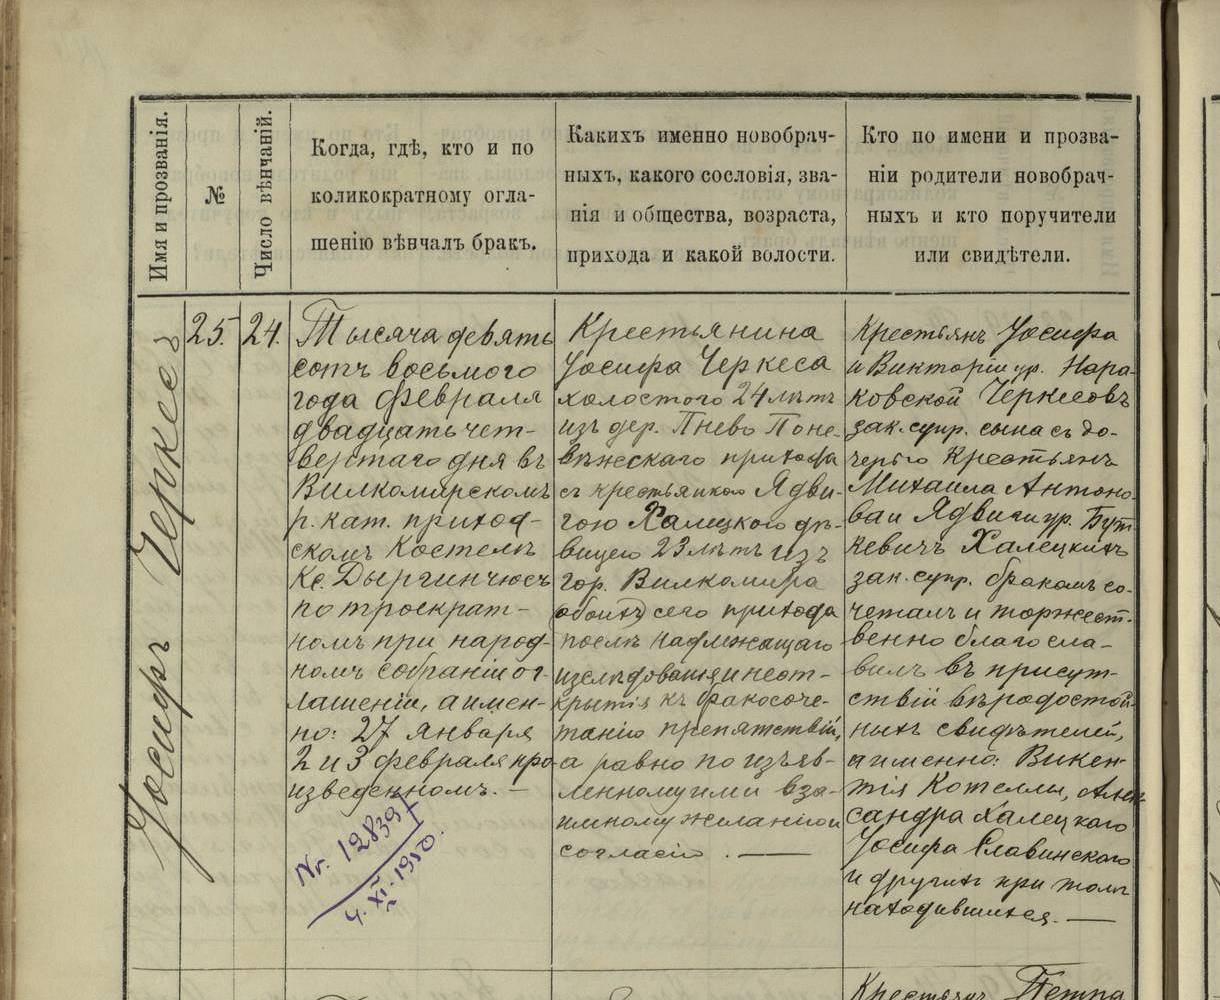 Имя и прозванія.
№
Число вѣнчаній.
Когда, гдѣ, кто и по
коликократному огла-
шенію вѣнчалъ бракъ.
Какихъ именно новобрач-
ныхъ, какого сословія, зва-
нія и общества, возраста,
прихода и какой волости.
Кто по имени и прозва-
ніи родители новобрач-
ныхъ и кто поручители
или свидѣтели.
Іосифъ Черкесъ
25.
24.
Тысяча девять
сотъ восьмого
года февраля
двадцать чет-
вертаго дня въ
Вилкомирскомъ
р. кат. приход-
скомъ костелѣ
Кс. Дыргинчюсъ
по троекрат-
номъ при народ-
номъ собраніи ог-
лашеніи, а имен-
но: 27 января
2 и 3 февраля про-
изведенномъ. —
Nr. 12839
4. XI. 1930.
Крестьянина
Іосифа Черкеса
холостого 24 лѣтъ
изъ дер. Пнево Поне-
вѣжскаго прихода
съ крестьянкою Ядви-
гою Халецкою дѣ-
вицею 23 лѣтъ изъ
гор. Вилкомира
обоихъ сего прихода
послѣ надлежащаго
изслѣдованія и неот-
крытія къ бракосоче-
танію препятствій,
а равно по изъяв-
ленному ими вза-
имному желанію и
согласію. —
Крестьянъ Іосифа
и Викторіи ур. Нара-
ковской Черкесовъ
зак. супр. сына съ до-
черью Крестьянъ
Михаила Антоно-
ва и Ядвиги ур. Бут-
кевичъ Халецкихъ
зак. супр. бракомъ со-
четалъ и торжест-
венно благосла-
вилъ въ присут-
ствіи вѣродостой-
ныхъ свидѣтелей,
а именно: Викен-
тія Котеллы, Алек-
сандра Халецкаго
Іосифа Славинскаго
и другихъ при томъ
находившихся. —
Крестьянъ Петра